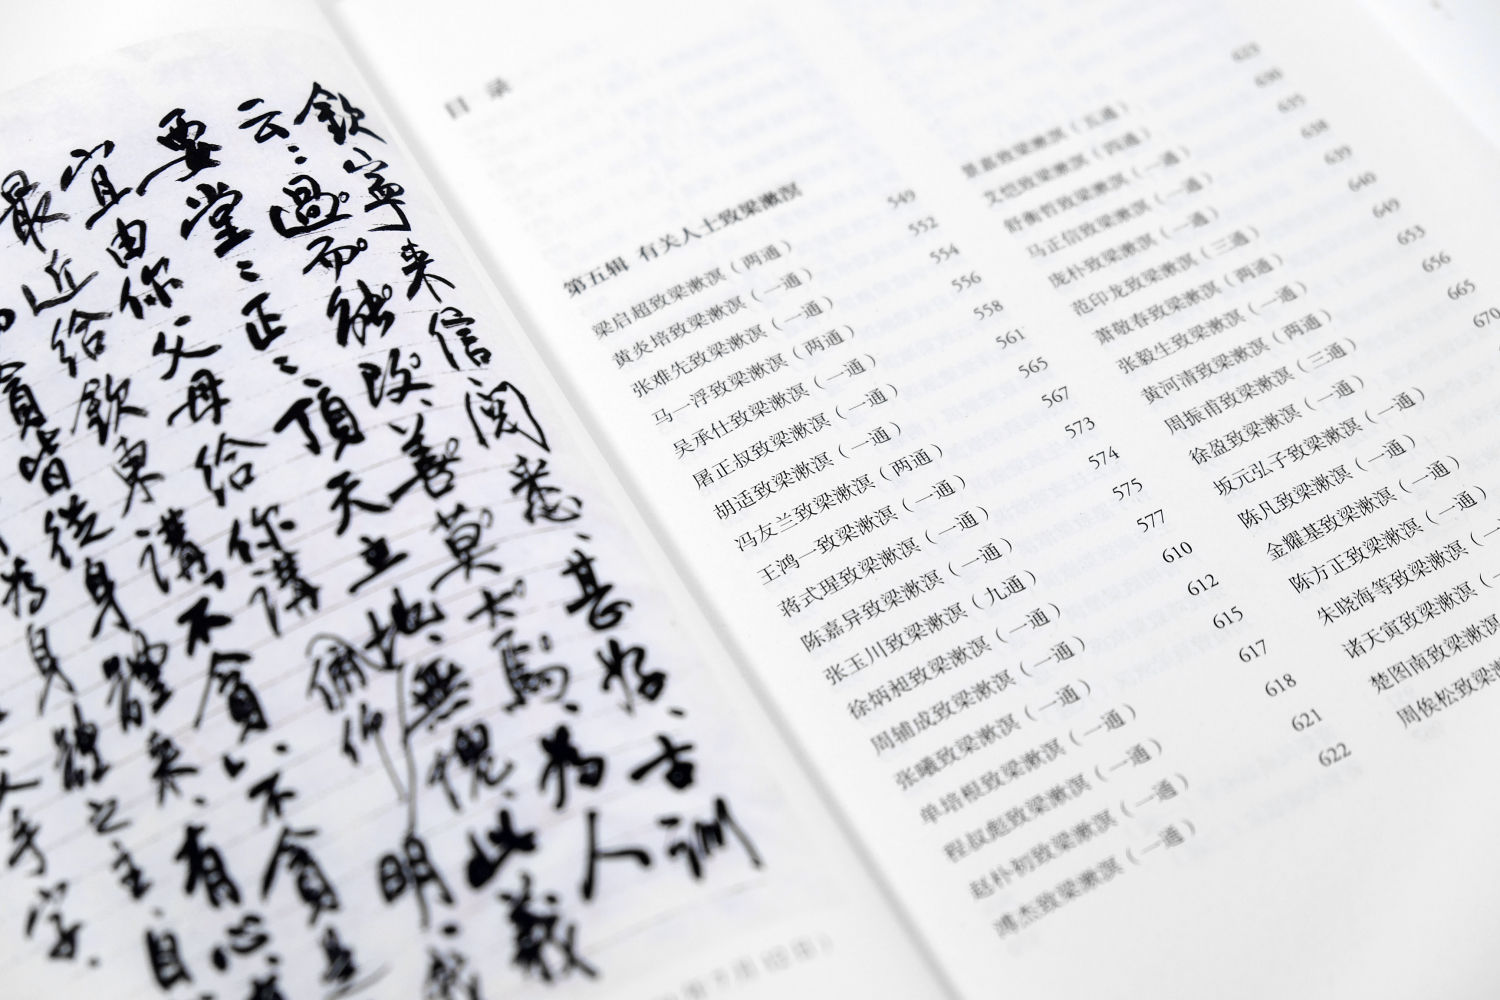 钦宁来信阅悉甚好古训
云过而能改善莫大焉为人
要堂堂正正顶天立地无愧此义
宜由你父母给你讲佩仰明
最近给钦东讲不贪不贪是
皆从身体来有心
身体之主自
目录
第五辑 有关人士致梁漱溟
梁启超致梁漱溟（两通） 549
黄炎培致梁漱溟（一通） 552
张难先致梁漱溟（一通） 554
马一浮致梁漱溟（两通） 556
吴承仕致梁漱溟（一通） 558
屠正叔致梁漱溟（一通） 561
胡适致梁漱溟（一通） 565
冯友兰致梁漱溟（两通） 567
王鸿一致梁漱溟（一通） 573
蒋式瑆致梁漱溟（一通） 574
陈嘉异致梁漱溟（一通） 575
张玉川致梁漱溟（九通） 577
徐炳昶致梁漱溟（一通） 610
周辅成致梁漱溟（一通） 612
张曦致梁漱溟（一通） 615
单培根致梁漱溟（一通） 617
程叔彪致梁漱溟（一通） 618
赵朴初致梁漱溟（一通） 621
溥杰致梁漱溟（一通） 622
景嘉致梁漱溟（五通） 623
艾恺致梁漱溟（四通） 630
舒衡哲致梁漱溟（一通） 635
马正信致梁漱溟（一通） 638
庞朴致梁漱溟（一通） 639
范印龙致梁漱溟（三通） 640
萧敬春致梁漱溟（两通） 649
张毅生致梁漱溟（一通） 653
黄河清致梁漱溟（两通） 656
周振甫致梁漱溟（三通） 665
徐盈致梁漱溟（一通） 670
坂元弘子致梁漱溟（一通）
陈凡致梁漱溟（一通）
金耀基致梁漱溟（一通）
陈方正致梁漱溟（一通）
朱晓海等致梁漱溟（一
诸天寅致梁漱溟（一
楚图南致梁漱溟
周俟松致梁漱